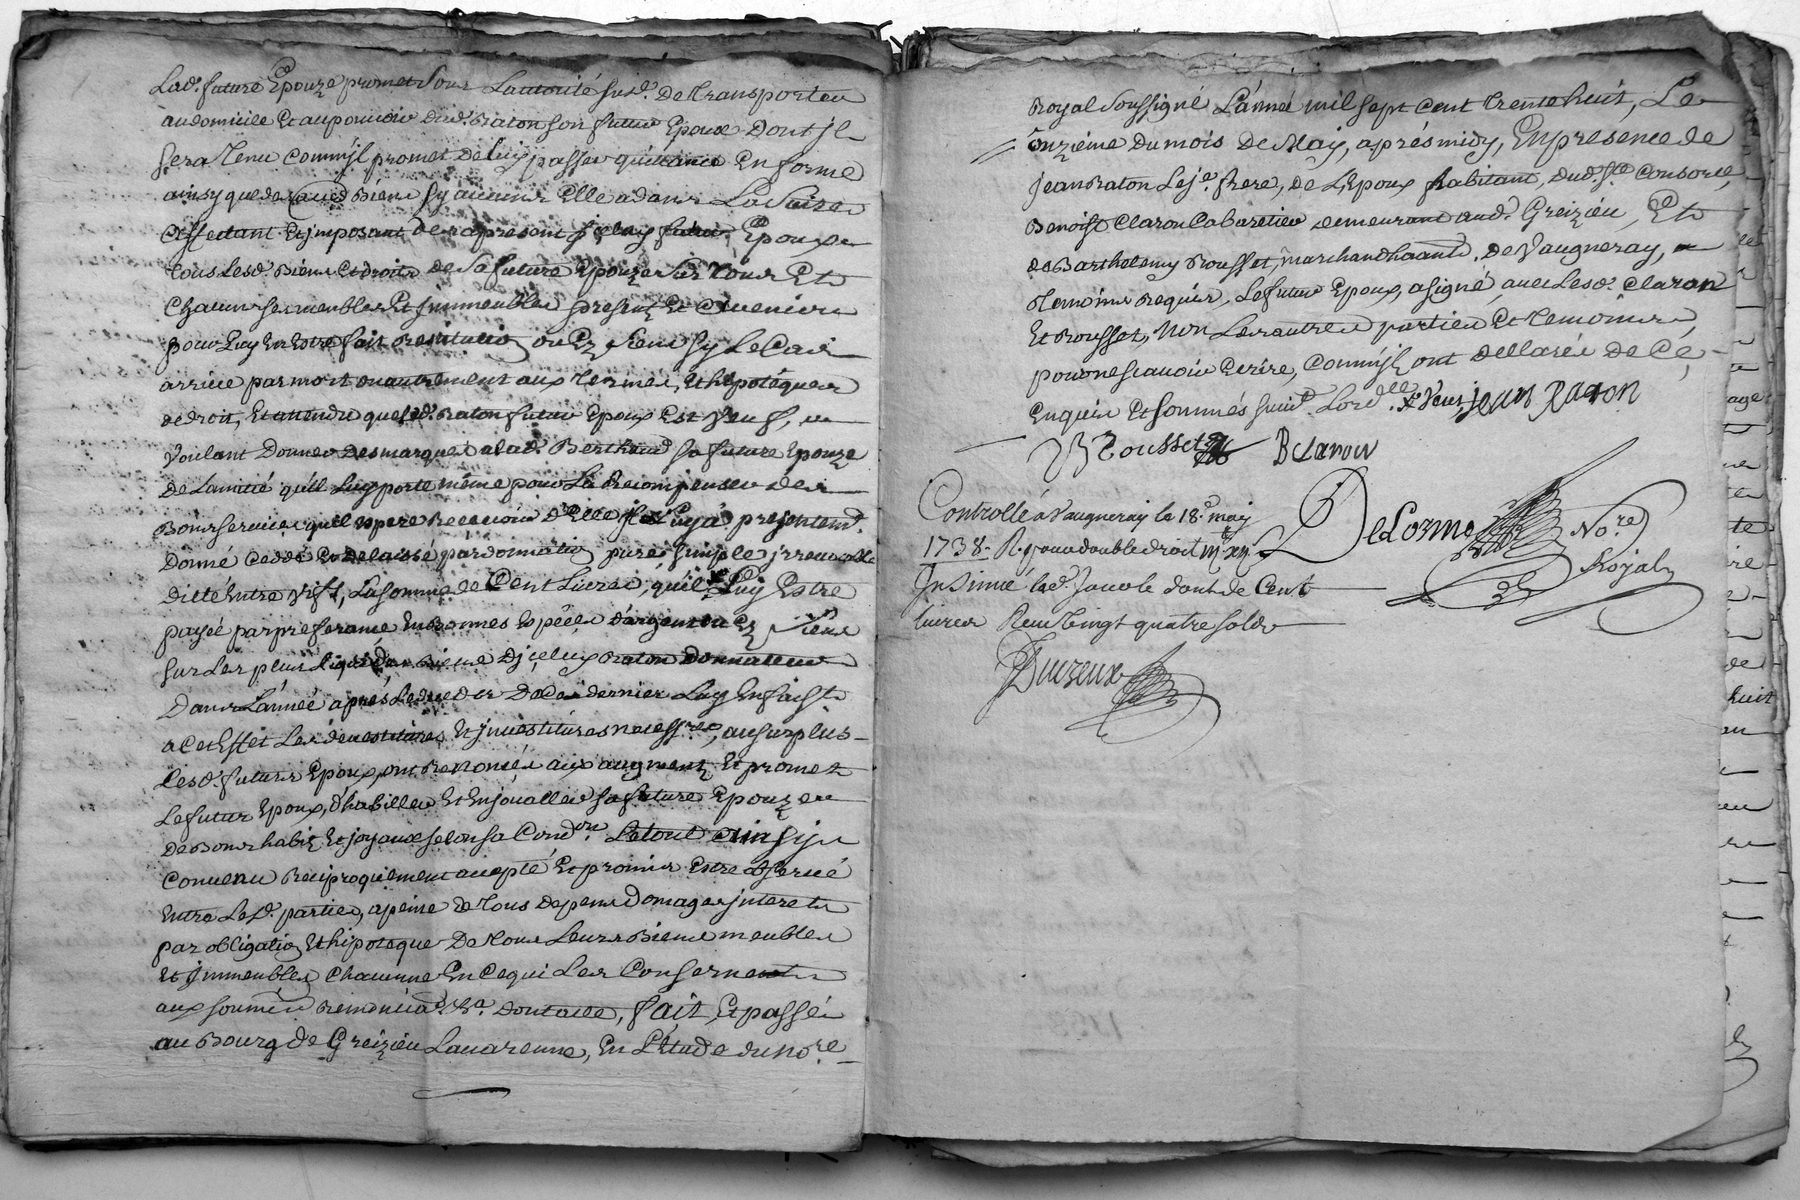 Lad.e future Epouze promet sous Lautorité susd.e De transporter
au domicile Et au pouvoir dud. Raton son futur Epoux Dont jl
sera tenu Comm'jl promet de luy passer quittance En forme
ainsy que de Biens sy aucuns Elle a dans La Suitte
affectant Et jmposant des apresent Epoux
tous lesd. Biens Et droits de Sa future Epouze Sur tous Et
Chacuns ses meubles Et jmmeubles presents Et avenirs
pour Luy En Estre fait restitution ou Ez Siens sy le Cas
arrive par mort ou autrement aux termes, Et hipotéques
de droit, Et attendu que led. Raton futur Epoux Est Veuf,
Voulant Donner des marques alad. Berthaud sa future Epouze
De Lamitié qu'il Luy porte même pour La Recompenser des
Bons services qu'il Espere Recevoir D'Elle jl Luy a presentem.t
Donné Ceddé Et Delaissé par donnation pure, simple jrrevocable
Ditte Entre Vifs, La somme de Cent Livres, qu'il Luy Estre
payée par preferance En Bonnes Espêces D'argent ou Ez Siens
sur Les plus liquides Biens D'jceluy Raton Donnateur
Dans L'année aprés Le deces Du dernier Luy En fais.t
a Cet Effet Les devestitures Et jnvestitures necess.res, au surplus
Lesd. futurs Epoux, ont Renoncés aux augments Et promet
Le futur Epoux, d'habiller Et Enjoualler sa future Epouze
De Bons habits Et joyaux selon sa Cond.on Le tout ainsi
Convenu Reciproquement accepté Et promis Estre observé
Entre Lesd. parties, a peine de tous depens Domages jnterets
par obligation Et hipoteque De tous Leurs Biens meubles
Et jmmeubles Chacunne En Ce qui Les Conserne
aux soumi.ns Renoncia.ns dont acte, fait, Et passé
au Bourg de Greizieu Lavarenne, En L'Etude du No.re
Royal Soussigné L'année mil sept Cent trente huit, Le
onzième du mois de May, aprés midy, En presence de
Jean Raton Le je. frere, de L'Epoux habitant, dud. Ste Consorce,
Benoist Claron Cabaretier demeurant aud. Greizieu, Et
de Barthelemy Rousset, marchand habitant. de Vaugneray,
temoins Requis, Le futur Epoux, a signé avec Lesd. Claron
Et Rousset, Non Les autres parties Et temoins,
pour ne scavoir Ecrire, Comm'jl ont déclarés de Cé,
Enquis Et sommés suiv.t Lord.ce Jean Raton
B Rousset B Claron
Controllé a Vaugneray le 18.e may
1738. R. pour double droit
Delorme No.re Royal
Jnsinué led. Jour le dont de Cent
livres Reçu Vingt quatre sols
Duizeux